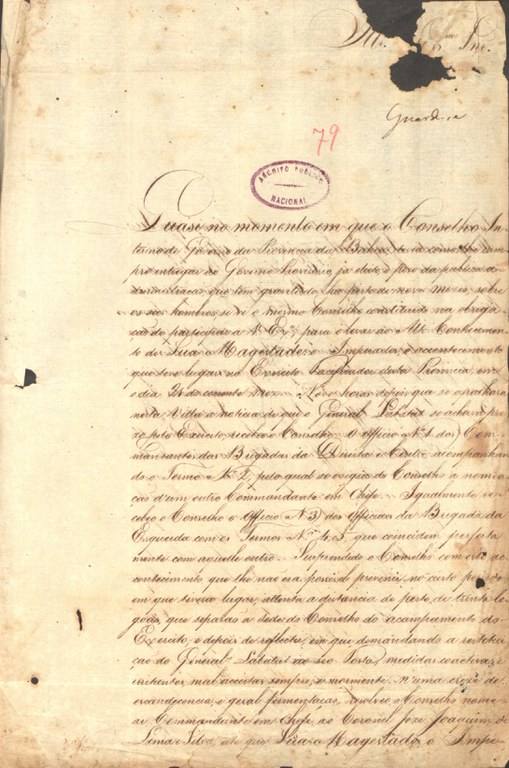 Ill.mo Snr.
Guarde-se
79
ARCHIVO PUBLICO
NACIONAL
Quasi no momento em que o Conselho In-
terino de Governo da Provincia da Bahia
entregar ao Governo Provisorio, já eleito, o peso da publica ad-
ministração que tem gravitado por perto de nove mezes, sobre
os seos hombros, se vê o mesmo Conselho constituido na obriga-
ção de participar a V. Exª, para elevar ao Alto Conhecimen-
to de Sua Magestade o Imperador, o acontecimento
que teve lugar no Exercito Pacificador desta Provincia, em
o dia 24 do corrente mez. Nove horas depois que se espalhara
nesta Villa a noticia de que o General Labatut se achava pre-
zo pelo Exercito, recebeo o Conselho o Officio Nº 1 dos Com-
mandantes das Brigadas da Direita e Centro acompanhan-
do o Termo Nº 2, pelo qual se exigia do Conselho a nomea-
ção d'um outro Commandante em Chefe. Igualmente re-
cebeo o Conselho o Officio Nº 3 dos Officiaes da Brigada da
Esquerda com os Termos Nos 4 e 5, que coincidem perfeita-
mente com aquelle outro. Surprendido o Conselho com este a-
contecimento que lhe não era possivel prevenir, no curto periodo
em que tivera lugar, attenta a distancia de perto de trinta le-
goas, que separa a séde do Conselho do acampamento do
Exercito, e depois de reflectir, em que demandando a restitui-
ção do General Labatut ao seo Posto, medidas coactivas, e
violentas, mal aceitas sempre, e mormente n'uma crize de
escandecencia, e geral fermentação, resolveo o Conselho nome-
ar Commandante em Chefe, ao Coronel Joze Joaquim de
Lima e Silva, até que Sua Magestade o Impe-